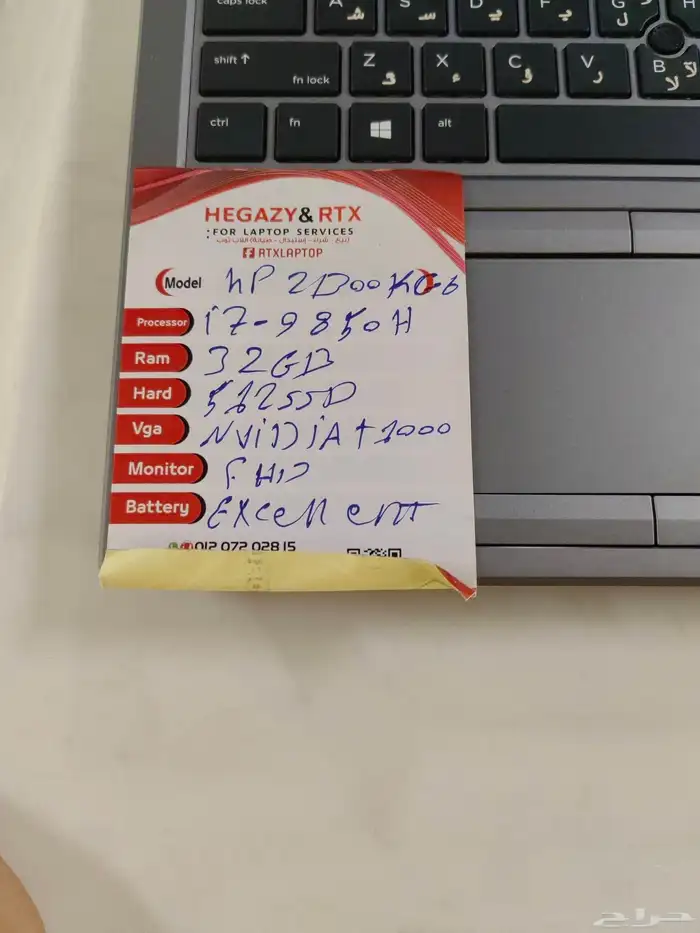 caps lock A ش S س D ي F ب G ل H
shift ↑ fn lock Z ئ X ء C ؤ V ر B لا لآ
ctrl fn alt
HEGAZY & RTX
: FOR LAPTOP SERVICES
(بيع - شراء - إستبدال - صيانة) اللاب توب
RTXLAPTOP
Model HP ZBOOK G6
Processor i7-9850H
Ram 32GB
Hard 512SSD
Vga NViDiA T1000
Monitor FHD
Battery EXCellent
012 072 02815
حراج